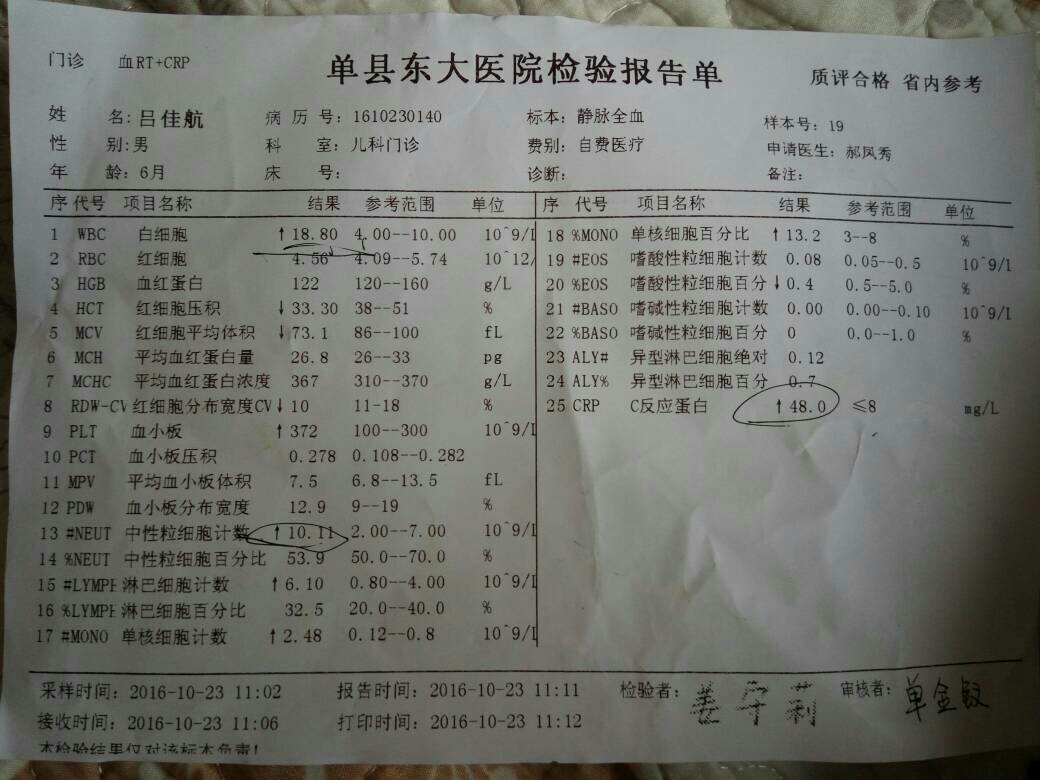 门诊 血RT+CRP 单县东大医院检验报告单 质评合格 省内参考
姓 名:吕佳航 病 历 号: 1610230140 标本: 静脉全血 样本号: 19
性 别:男 科 室: 儿科门诊 费别: 自费医疗 申请医生: 郝凤秀
年 龄: 6月 床 号: 诊断: 备注:
序 代号 项目名称 结果 参考范围 单位 序 代号 项目名称 结果 参考范围 单位
1 WBC 白细胞 ↑18.80 4.00--10.00 10^9/L
2 RBC 红细胞 4.56 4.09--5.74 10^12/
3 HGB 血红蛋白 122 120--160 g/L
4 HCT 红细胞压积 ↓33.30 38--51 %
5 MCV 红细胞平均体积 ↓73.1 86--100 fL
6 MCH 平均血红蛋白量 26.8 26--33 pg
7 MCHC 平均血红蛋白浓度 367 310--370 g/L
8 RDW-CV 红细胞分布宽度CV ↓10 11-18 %
9 PLT 血小板 ↑372 100--300 10^9/L
10 PCT 血小板压积 0.278 0.108--0.282
11 MPV 平均血小板体积 7.5 6.8--13.5 fL
12 PDW 血小板分布宽度 12.9 9--19 %
13 #NEUT 中性粒细胞计数 ↑10.11 2.00--7.00 10^9/L
14 %NEUT 中性粒细胞百分比 53.9 50.0--70.0 %
15 #LYMPH 淋巴细胞计数 ↑6.10 0.80--4.00 10^9/L
16 %LYMPH 淋巴细胞百分比 32.5 20.0--40.0 %
17 #MONO 单核细胞计数 ↑2.48 0.12--0.8 10^9/L
18 %MONO 单核细胞百分比 ↑13.2 3--8 %
19 #EOS 嗜酸性粒细胞计数 0.08 0.05--0.5 10^9/L
20 %EOS 嗜酸性粒细胞百分 ↓0.4 0.5--5.0 %
21 #BASO 嗜碱性粒细胞计数 0.00 0.00--0.10 10^9/L
22 %BASO 嗜碱性粒细胞百分 0 0.0--1.0 %
23 ALY# 异型淋巴细胞绝对 0.12
24 ALY% 异型淋巴细胞百分 0.7
25 CRP C反应蛋白 ↑48.0 ≤8 mg/L
采样时间: 2016-10-23 11:02 报告时间: 2016-10-23 11:11 检验者: 姜守莉 审核者:
接收时间: 2016-10-23 11:06 打印时间: 2016-10-23 11:12
本检验结果仅对该标本负责!